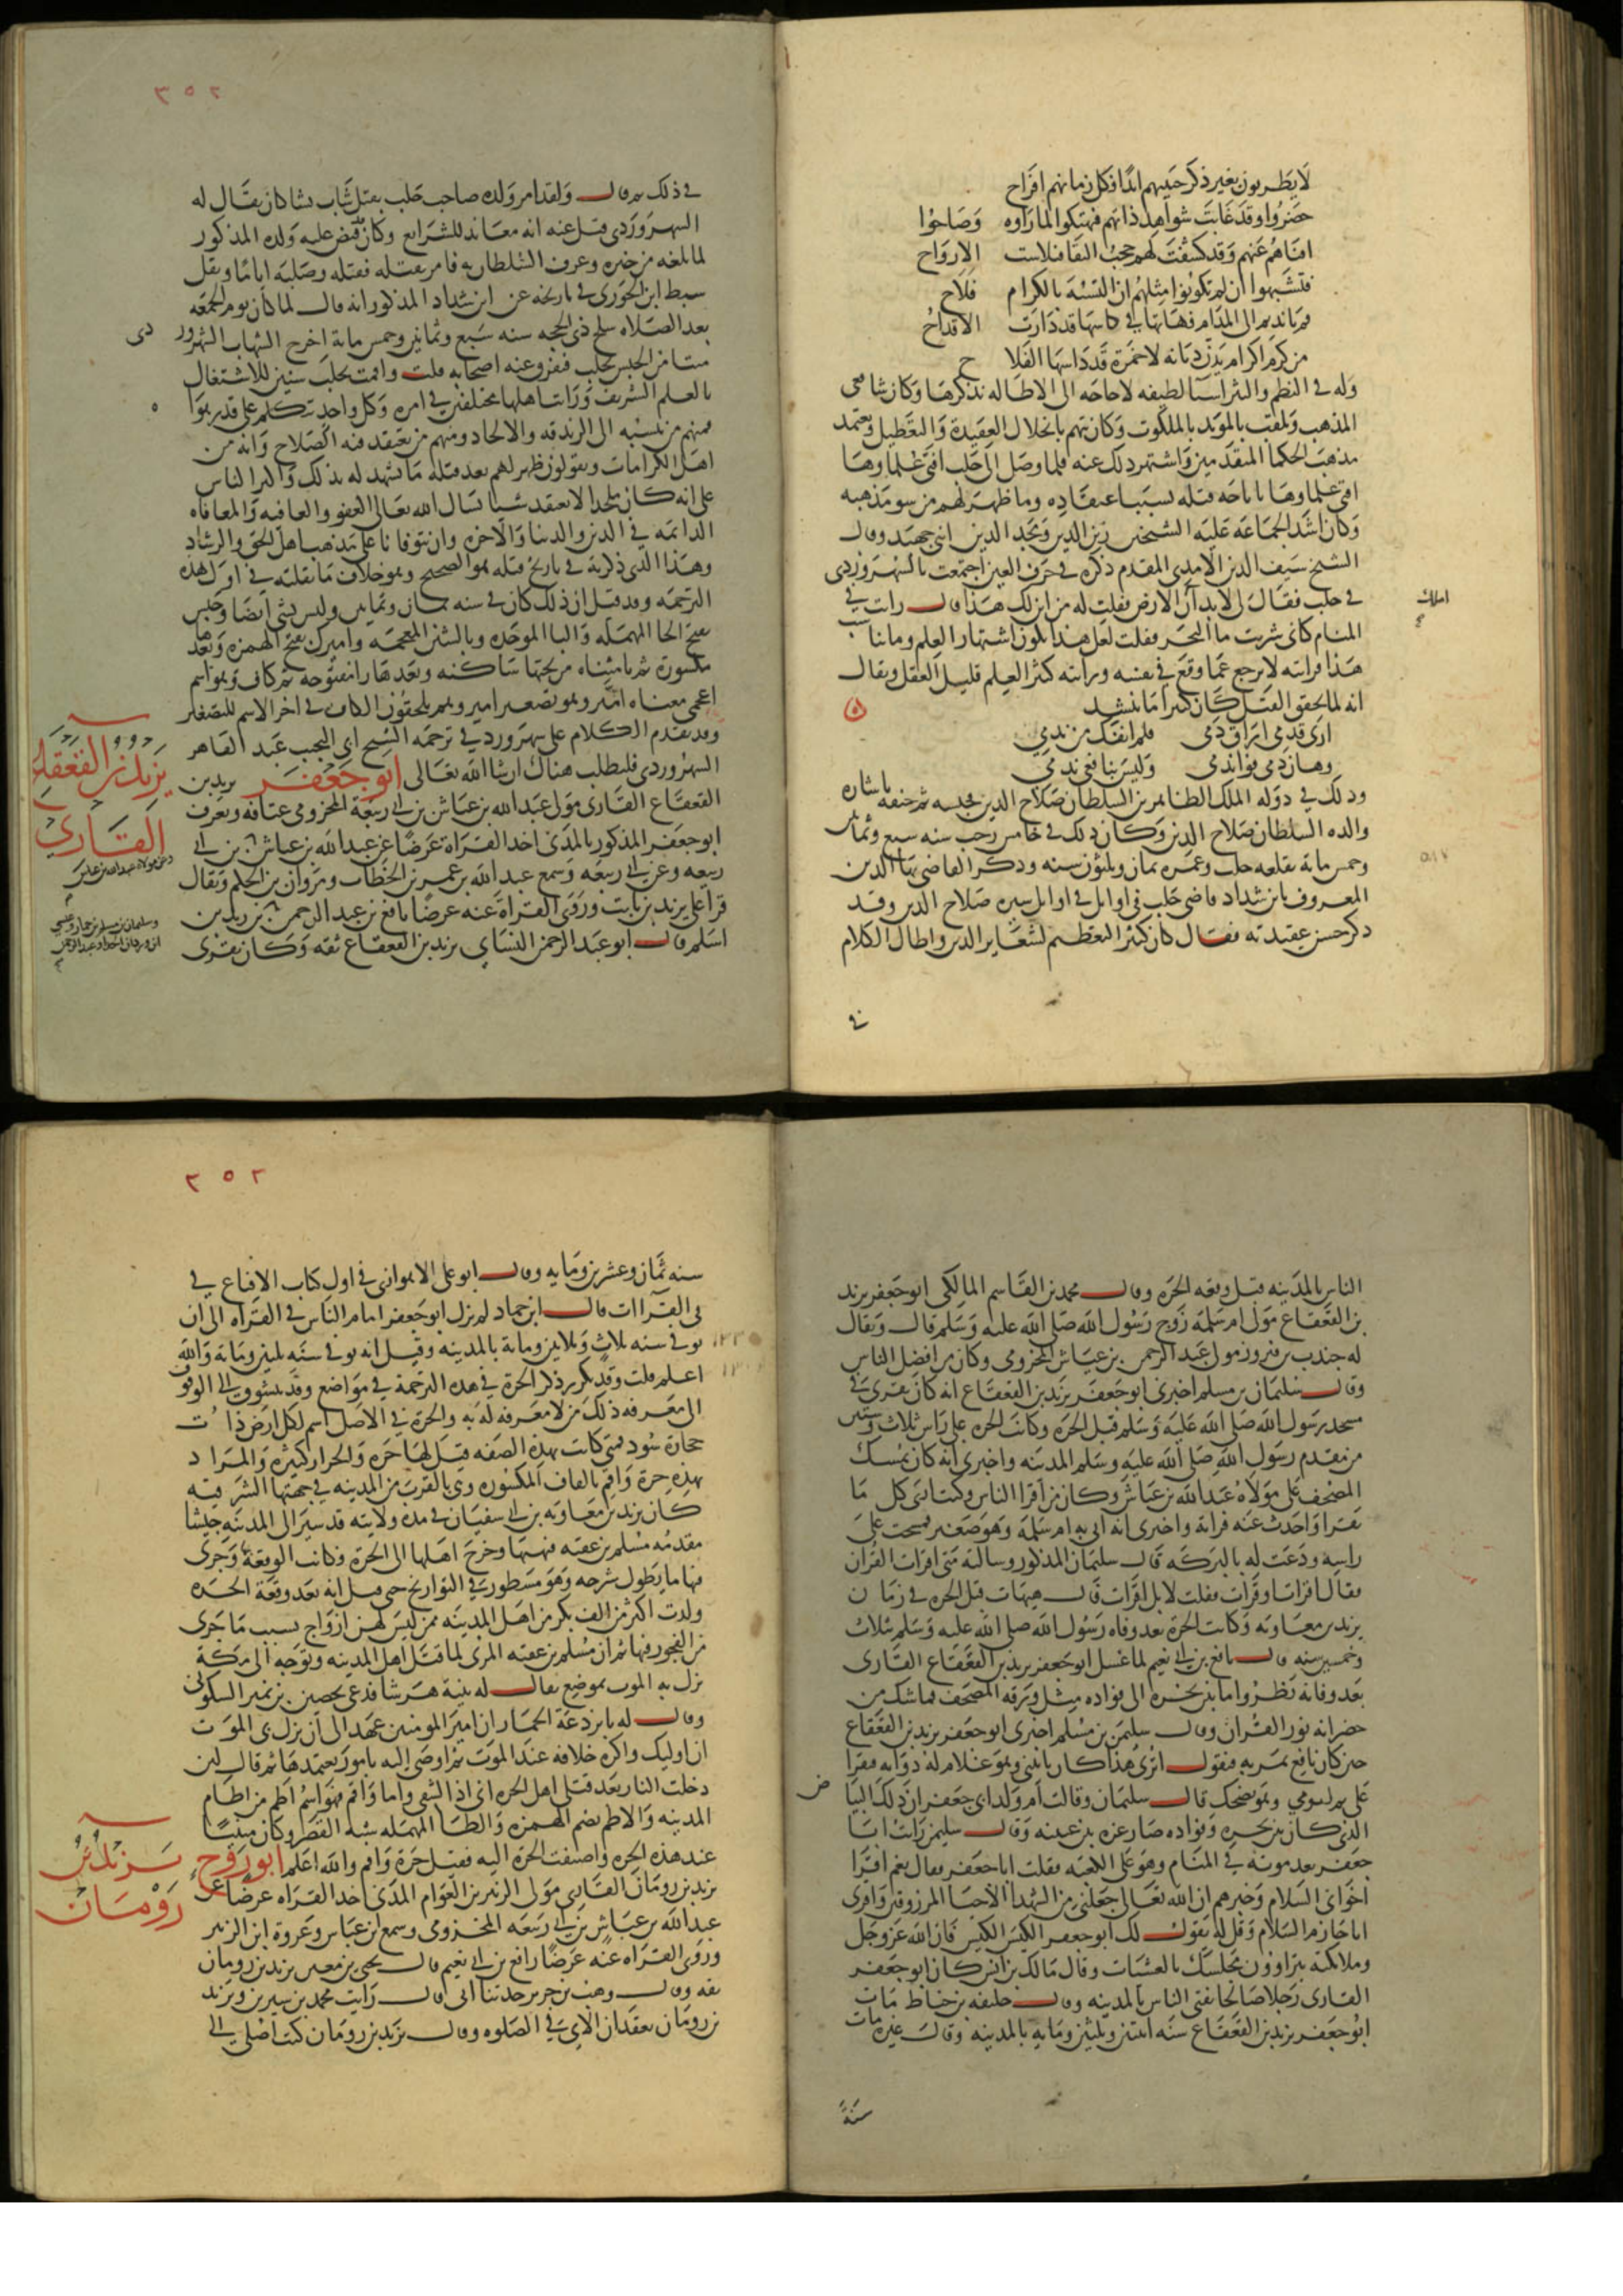 لا يطربون بغير ذكر حبيبهم ابدا فكل زمانهم افراح
حضروا وقد غابت شواهد ذاتهم فهتكوا لما راوه وصاحوا
افناهم عنهم وقد كشفت لهم حجب البقا فتلاشت الارواح
فتشبهوا ان لم تكونوا مثلهم ان التشبه بالكرام فلاح
قم يا نديم الى المدام فهاتها في كاسها قد دارت الاقداح
من كرم اكرام بدن ديانه لا خمرة قد داسها الفلاح
وله في النظم والنثر اشيا لطيفه لا حاجه الى الاطاله بذكرها وكان شافعى
المذهب ويلقب بالمويد بالملكوت وكان يتهم بانحلال العقيدة والتعطيل ويعتمد
مذهب الحكما المتقدمين واشتهر ذلك عنه فلما وصل الى حلب افتى علماوها
افتى علماوها باباحه قتله بسبب اعتقاده وما ظهر لهم من سو مذهبه
وكان اشد الجماعه عليه الشيخين زين الدين ومجد الدين ابني جهبد وقال
الشيخ سيف الدين الامدى المقدم ذكره في حرف العين اجتمعت بالسهروردى
في حلب فقال لى لا بد ان املك الارض فقلت له من اين لك هذا قال رايت في
المنام كانى شربت ما البحر فقلت لعل هذا يكون اشتهار العلم وما يناسب
هذا فرايته لا يرجع عما وقع في نفسه ورايته كثير العلم قليل العقل ويقال
انه لما تحقق القتل كان كثيرا ما ينشد
ارى قدمى اراق دمى فلم انفك من ندمى
وهان دمى فها ندمى وليس بنافعى ندمى
وذلك في دوله الملك الظاهر بن السلطان صلاح الدين فحبسه ثم خنقه باشاره
والده السلطان صلاح الدين وكان ذلك في خامس رجب سنه سبع وثمانين
وخمس مايه بقلعه حلب وعمره ثمان وثلثون سنه وذكر القاضى بها الدين
المعروف بابن شداد قاضى حلب في اوايل في اوايل سيره صلاح الدين وقد
ذكر حسن عقيدته فقال كان كثير التعظيم لشعاير الدين واطال الكلام
في
٣٥٢
في ذلك ثم قال ولقد امر ولده صاحب حلب بقتل شاب نشا كان يقال له
السهروردى قيل عنه انه معاند للشرايع وكان قد قبض عليه ولده المذكور
لما بلغه من خبره وعرف السلطان به فامر بقتله فقتله وصلبه اياما ونقل
سبط ابن الجوزى في تاريخه عن ابن شداد المذكور انه قال لما كان يوم الجمعه
بعد الصلاه سلخ ذى الحجه سنه سبع وثمانين وخمس ماية اخرج الشهاب السهرور دى
ميتا من الحبس بحلب فتفرق عنه اصحابه قلت واقمت بحلب سنين للاشتغال
بالعلم الشريف ورايت اهلها مختلفين في امره وكل واحد يتكلم على قدر هواه
فمنهم من ينسبه الى الزندقه والالحاد ومنهم من يعتقد فيه الصلاح وانه من
اهل الكرامات ويقولون ظهر لهم بعد قتله ما يشهد له بذلك واكثر الناس
على انه كان ملحدا لا يعتقد شيا نسال الله تعالى العفو والعافيه والمعافاه
الدايمه في الدين والدنيا والاخره وان يتوفانا على مذهب اهل الحق والرشاد
وهذا الذى ذكرته في تاريخ قتله هو الصحيح وهو خلاف ما نقلته في اول هذه
الترجمه وقد قيل ان ذلك كان في سنه ثمان وثمانين وليس بشى ايضا وحبش
بفتح الحا المهمله والبا الموحده وبالشين المعجمه واميرك بفتح الهمزه وبعدها
مكسورة ثم يا مثناه من تحتها ساكنه وبعدها را مفتوحه ثم كاف وهو اسم
اعجمى معناه امير وهو تصغير امير وهم يلحقون الكاف في اخر الاسم للتصغير
وقد تقدم الكلام على سهرورد في ترجمه الشيخ ابى النجيب عبد القاهر
السهروردى فليطلب هناك ان شا الله تعالى ابو جعفر يزيد بن
القعقاع القارى مولى عبد الله بن عياش بن ابى ربيعة المخزومى عتاقه ويعرف
ابو جعفر المذكور بالمدنى اخذ القراة عرضا عن عبد الله بن عباش بن ابى
ربيعه وعن ابى ربيعه وسمع عبد الله بن عمر بن الخطاب ومروان بن الحكم ويقال
قرا على زيد بن ثابت وروى القراة عنه عرضا نافع بن عبد الرحمن بن زيد بن
اسلم قال ابو عبد الرحمن النساى يزيد بن القعقاع ثقه وكان يقرى
يزيد بن القعقاع
القارى
الناس بالمدينه قبل وقعه الحره وقال محمد بن القاسم المالكى ابو جعفر يزيد
بن القعقاع مولى ام سلمة زوج رسول الله صلى الله عليه وسلم قال ويقال
له جندب بن فيروز مولى عبد الرحمن بن عياش المخزومى وكان من افضل الناس
وقال سليمان بن مسلم اخبرنى ابو جعفر يزيد بن القعقاع انه كان يقرى في
مسجد رسول الله صلى الله عليه وسلم قبل الحره وكانت الحره على راس ثلاث وستين
من مقدم رسول الله صلى الله عليه وسلم المدينه واخبرنى انه كان يمسك
المصحف على مولاه عبد الله بن عياش وكان من اقرا الناس وكنت ارى كل ما
يقرا واخذت عنه قراته واخبرنى انه اتى به ام سلمة وهو صغير فمسحت على
راسه ودعت له بالبركه قال سليمان المذكور وسالته متى اقرات القران
فقال اقرات او قرات فقلت لا بل اقرات قال هيهات قبل الحره في زمان
يزيد بن معاويه وكانت الحرة بعد وفاه رسول الله صلى الله عليه وسلم بثلاث
وخمسين سنه قال نافع بن ابى نعيم لما غسل ابو جعفر يزيد بن القعقاع القارى
بعد وفاته نظروا ما بين نحره الى فواده مثل ورقه المصحف فما شك من
حضر انه نور القران وقال سليمن بن مسلم اخبرنى ابو جعفر يزيد بن القعقاع
حين كان نافع يمر به فيقول اترى هذا كان ياتينى وهو غلام له ذوابه فيقرا
على ثم وهو يضحك قال سليمان وقالت ام ولد ابى جعفر ان ذلك البياض
الذى كان بين نحره وفواده صار غره بين عينيه وقال سليمن رايت ابا
جعفر بعد موته في المنام وهو على الكعبه فقلت ابا جعفر فقال نعم اقرا
اخوانى السلام وخبرهم ان الله تعالى جعلنى من الشهدا الاحيا المرزوقين واقرى
ابا حازم السلام وقل له يقول لك ابو جعفر الكيس الكيس فان الله عز وجل
وملايكته يتراوون مجلسك بالعشيات وقال مالك بن انس كان ابو جعفر
القارى رجلا صالحا يفتى الناس بالمدينه وقال خليفه بن خياط مات
ابو جعفر يزيد بن القعقاع سنه اثنتين وثلثين ومايه بالمدينه وقال غيره مات
سنة
٣٥٣
سنه ثمان وعشرين ومايه وقال ابو على الاهوازى في اول كتاب الاقناع في
في القراات قال ابن جماد لم يزل ابو جعفر امام الناس في القراه الى ان
توفى سنه ثلاث وثلاثين وماية بالمدينه وقيل انه توفى سنه ثلثين وماية والله
اعلم قلت وقد تكرر ذكر الحرة في هذه الترجمة في مواضع وقد يتشوق الى الوقوف
الى معرفه ذلك من لا معرفه له به والحرة في الاصل اسم لكل ارض ذات
حجارة سود فمتى كانت بهذه الصفه قيل لها حره والحرار كثيره والمراد
بهذه حرة واقم بالقاف المكسوره وهى بالقرب من المدينه في جهتها الشرقيه
كان يزيد بن معاويه بن ابى سفيان في مده ولايته قد سير الى المدينه جيشا
مقدمه مسلم بن عقبه فنهبها وخرج اهلها الى الحرة فكانت الوقعة بها وجرى
فيها ما يطول شرحه وهو مسطور في التواريخ حتى قيل انه بعد وقعة الحره
ولدت اكثر من الف بكر من اهل المدينه ممن ليس لهن ازواج بسبب ما جرى
من الفجور فيها ثم ان مسلم بن عقبه المرى لما قتل اهل المدينه وتوجه الى مكة
نزل به الموت بموضع يقال له ثنية هرشا فدعى حصين بن نمير السكونى
وقال له يا بردعة الحمار ان امير المومنين عهد الى ان نزل بى الموت
ان اوليك واكره خلافه عند الموت ثم اوصى اليه بامور يعتمدها ثم قال لين
دخلت النار بعد قتلى اهل الحره انى اذا لشقى واما واقم فهو اسم اطم من اطام
المدينه والاطم بضم الهمزه والطا المهمله شبه القصر وكان مبنيا
عند هذه الحره واضيفت الحرة اليه فقيل حرة واقم والله اعلم ابو روح
يزيد بن رومان القارى مولى الزبير بن العوام المدنى اخذ القراه عرضا عن
عبد الله بن عباش بن ابى ربيعه المخزومى وسمع ابن عباس وعروة ابن الزبير
وروى القراه عنه عرضا نافع بن ابى نعيم قال يحيى بن معين يزيد بن رومان
ثقه وقال وهب بن جرير حدثنا ابى قال رايت محمد بن سيرين ويزيد
بن رومان يعقدان الاى في الصلوه وقال يزيد بن رومان كنت اصلى الى
يزيد بن
رومان